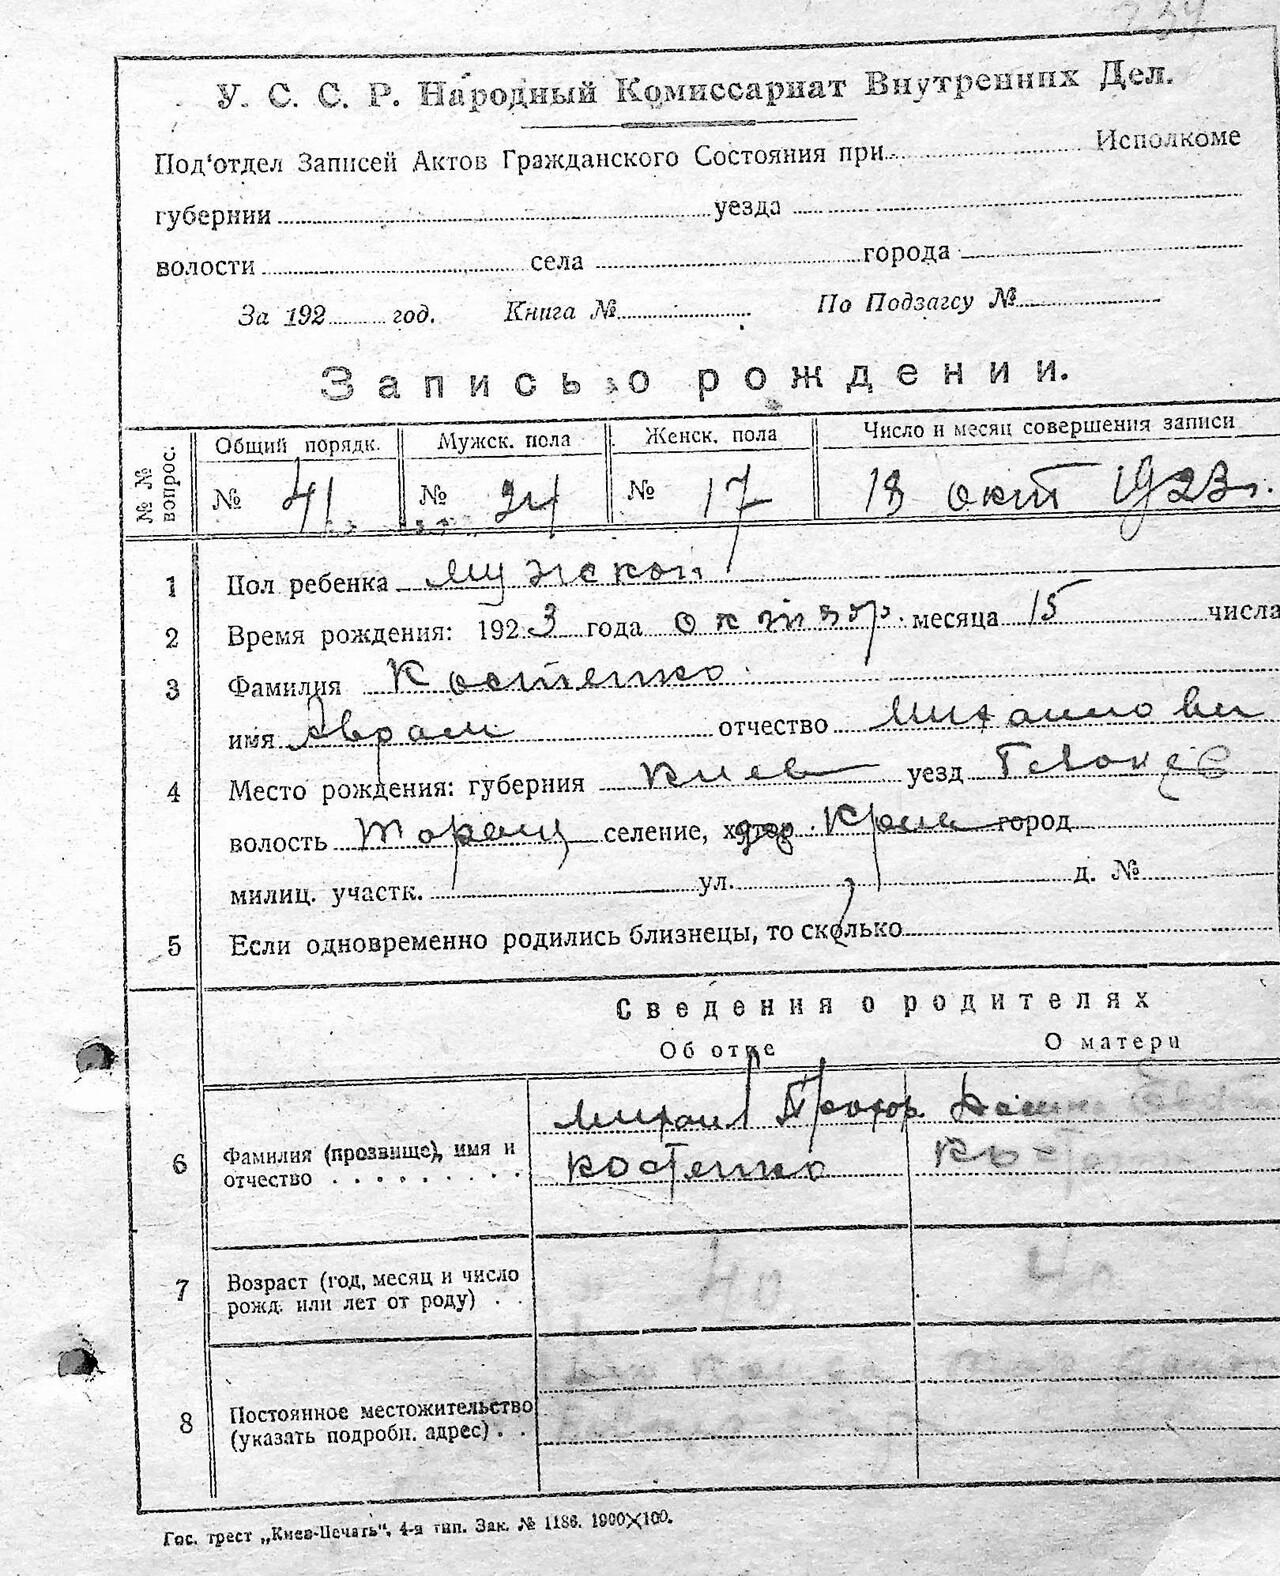 234
У. С. С. Р. Народный Комиссариат Внутренних Дел.
Под'отдел Записей Актов Гражданского Состояния при Исполкоме
губернии уезда
волости села города
За 192 год. Книга № По Подзагсу №
Запись о рождении.
№ № вопрос. Общий порядк. Мужск. пола Женск. пола Число и месяц совершения записи
№ 41 № 24 № 17 18 окт 1923 г.
1 Пол ребенка мужской
2 Время рождения: 1923 года октябр. месяца 15 числа
3 Фамилия Костенко
имя Аврам отчество Михайлови
4 Место рождения: губерния Киев уезд
волость селение, хутор город
милиц. участк. ул. д. №
5 Если одновременно родились близнецы, то сколько
Сведения о родителях
Об отце О матери
Михаил Прохор.
6 Фамилия (прозвище), имя и отчество Костенко
7 Возраст (год, месяц и число рожд. или лет от роду) 40 40
8 Постоянное местожительство (указать подробн. адрес)
Гос. трест „Киев-Печать“, 4-я тип. Зак. № 1186. 1900×100.